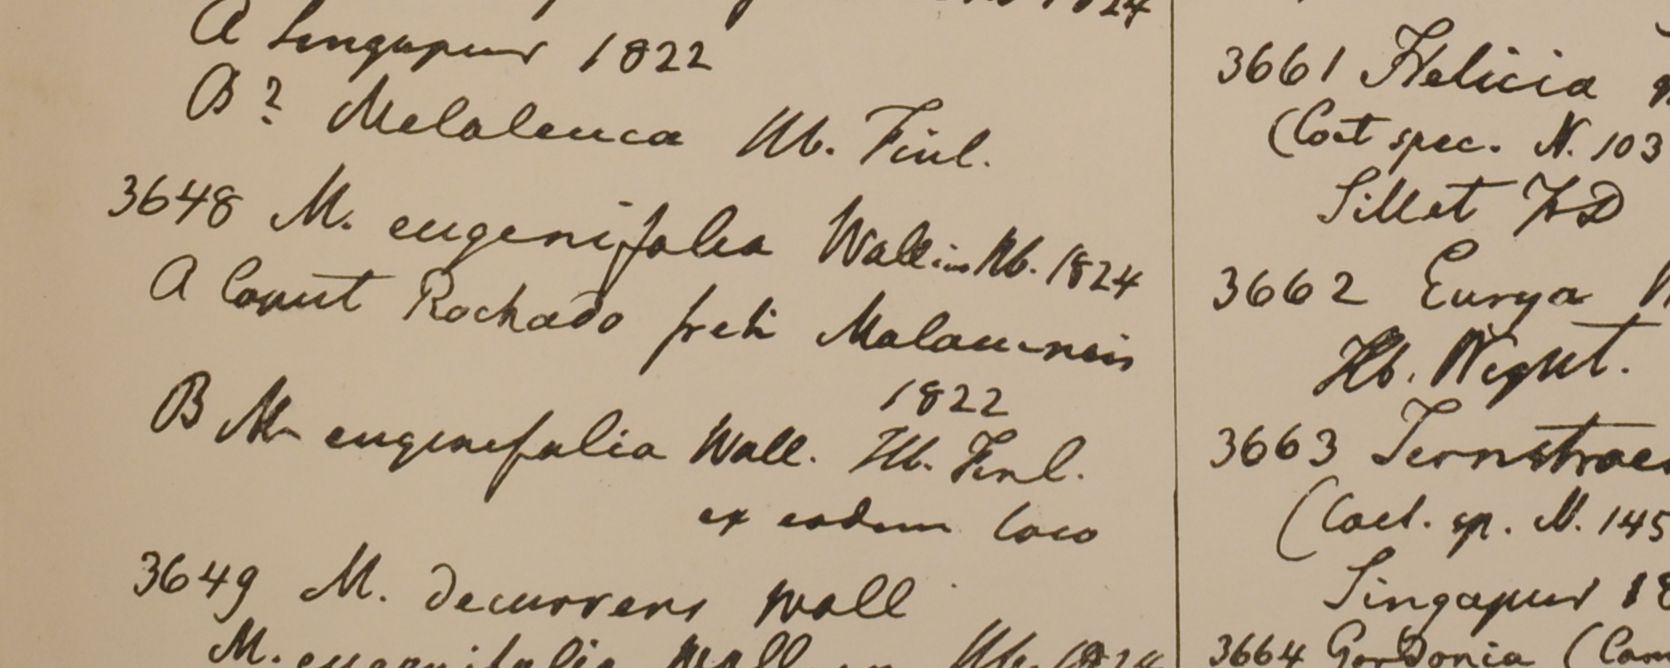 1824
A Singapur 1822
B? Melaleuca Hb. Finl.
3648 M. eugenifolia Wall in Hb. 1824
A Caput Rochado freti Malaccensis
1822
B M. eugenifolia Wall. Hb. Finl.
ex eodem loco
3649 M. decurrens Wall
M. eugenifolia Wall in Hb. 1824
3661 Helicia
(Coct spec. N. 103
Sillet FD
3662 Eurya
Hb. Wight.
3663 Ternstroe
(Coct. sp. N. 145
Singapur 18
3664 Gordonia (Cam